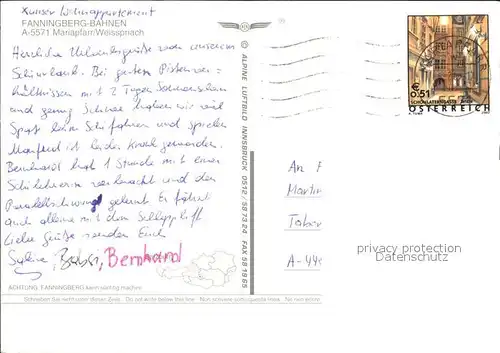 x unser Wohnappartement
FANNINGBERG-BAHNEN
A-5571 Mariapfarr/Weisspriach
Herzliche Urlaubsgrüße von unserem
Schiurlaub. Bei guten Pistenver-
hältnissen mit 2 Tagen Sonnenschein
und genug Schnee haben wir viel
Spaß beim Schifahren und spielen
Manfred ist leider krank geworden.
Bernhard hat 1 Stunde mit einem
Schilehrer verbracht und den
Parallelschwung gelernt. Er fährt
auch alleine mit dem Schlepplift
Liebe Grüße senden Euch
Bernhard
ACHTUNG: FANNINGBERG kann süchtig machen
Schreiben Sie nicht unter dieser Zeile. Do not write below this line
© ALPINE LUFTBILD INNSBRUCK 0512/587324 FAX 581965
€ 0,51
SCHÖNLATERNGASSE, WIEN
ÖSTERREICH
An F
Martin
Tabor
A-44
privacy protection
Datenschutz